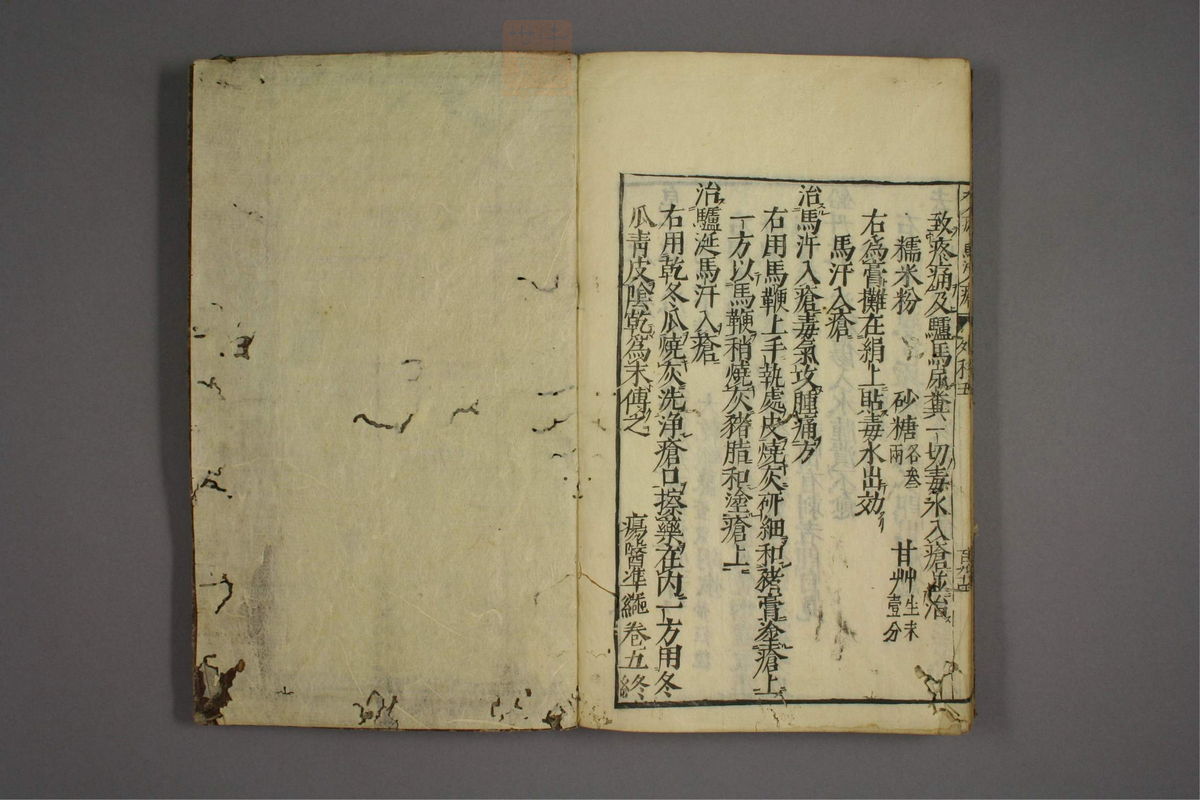 致疼痛及驢馬尿糞一切毒水入瘡並治
糯米粉 砂糖各叁兩 甘艸生末壹分
右為膏攤在絹上貼毒水出効
馬汗入瘡
治馬汗入瘡毒氣攻腫痛方
右用馬鞭上手執處皮燒灰研細和豬膏塗瘡上
一方以馬鞭稍燒灰豬脂和塗瘡上
治驢涎馬汗入瘡
右用乾冬瓜燒灰洗浄瘡口摻藥在内一方用冬
瓜青皮陰乾為末傅之 瘍醫準繩卷五終